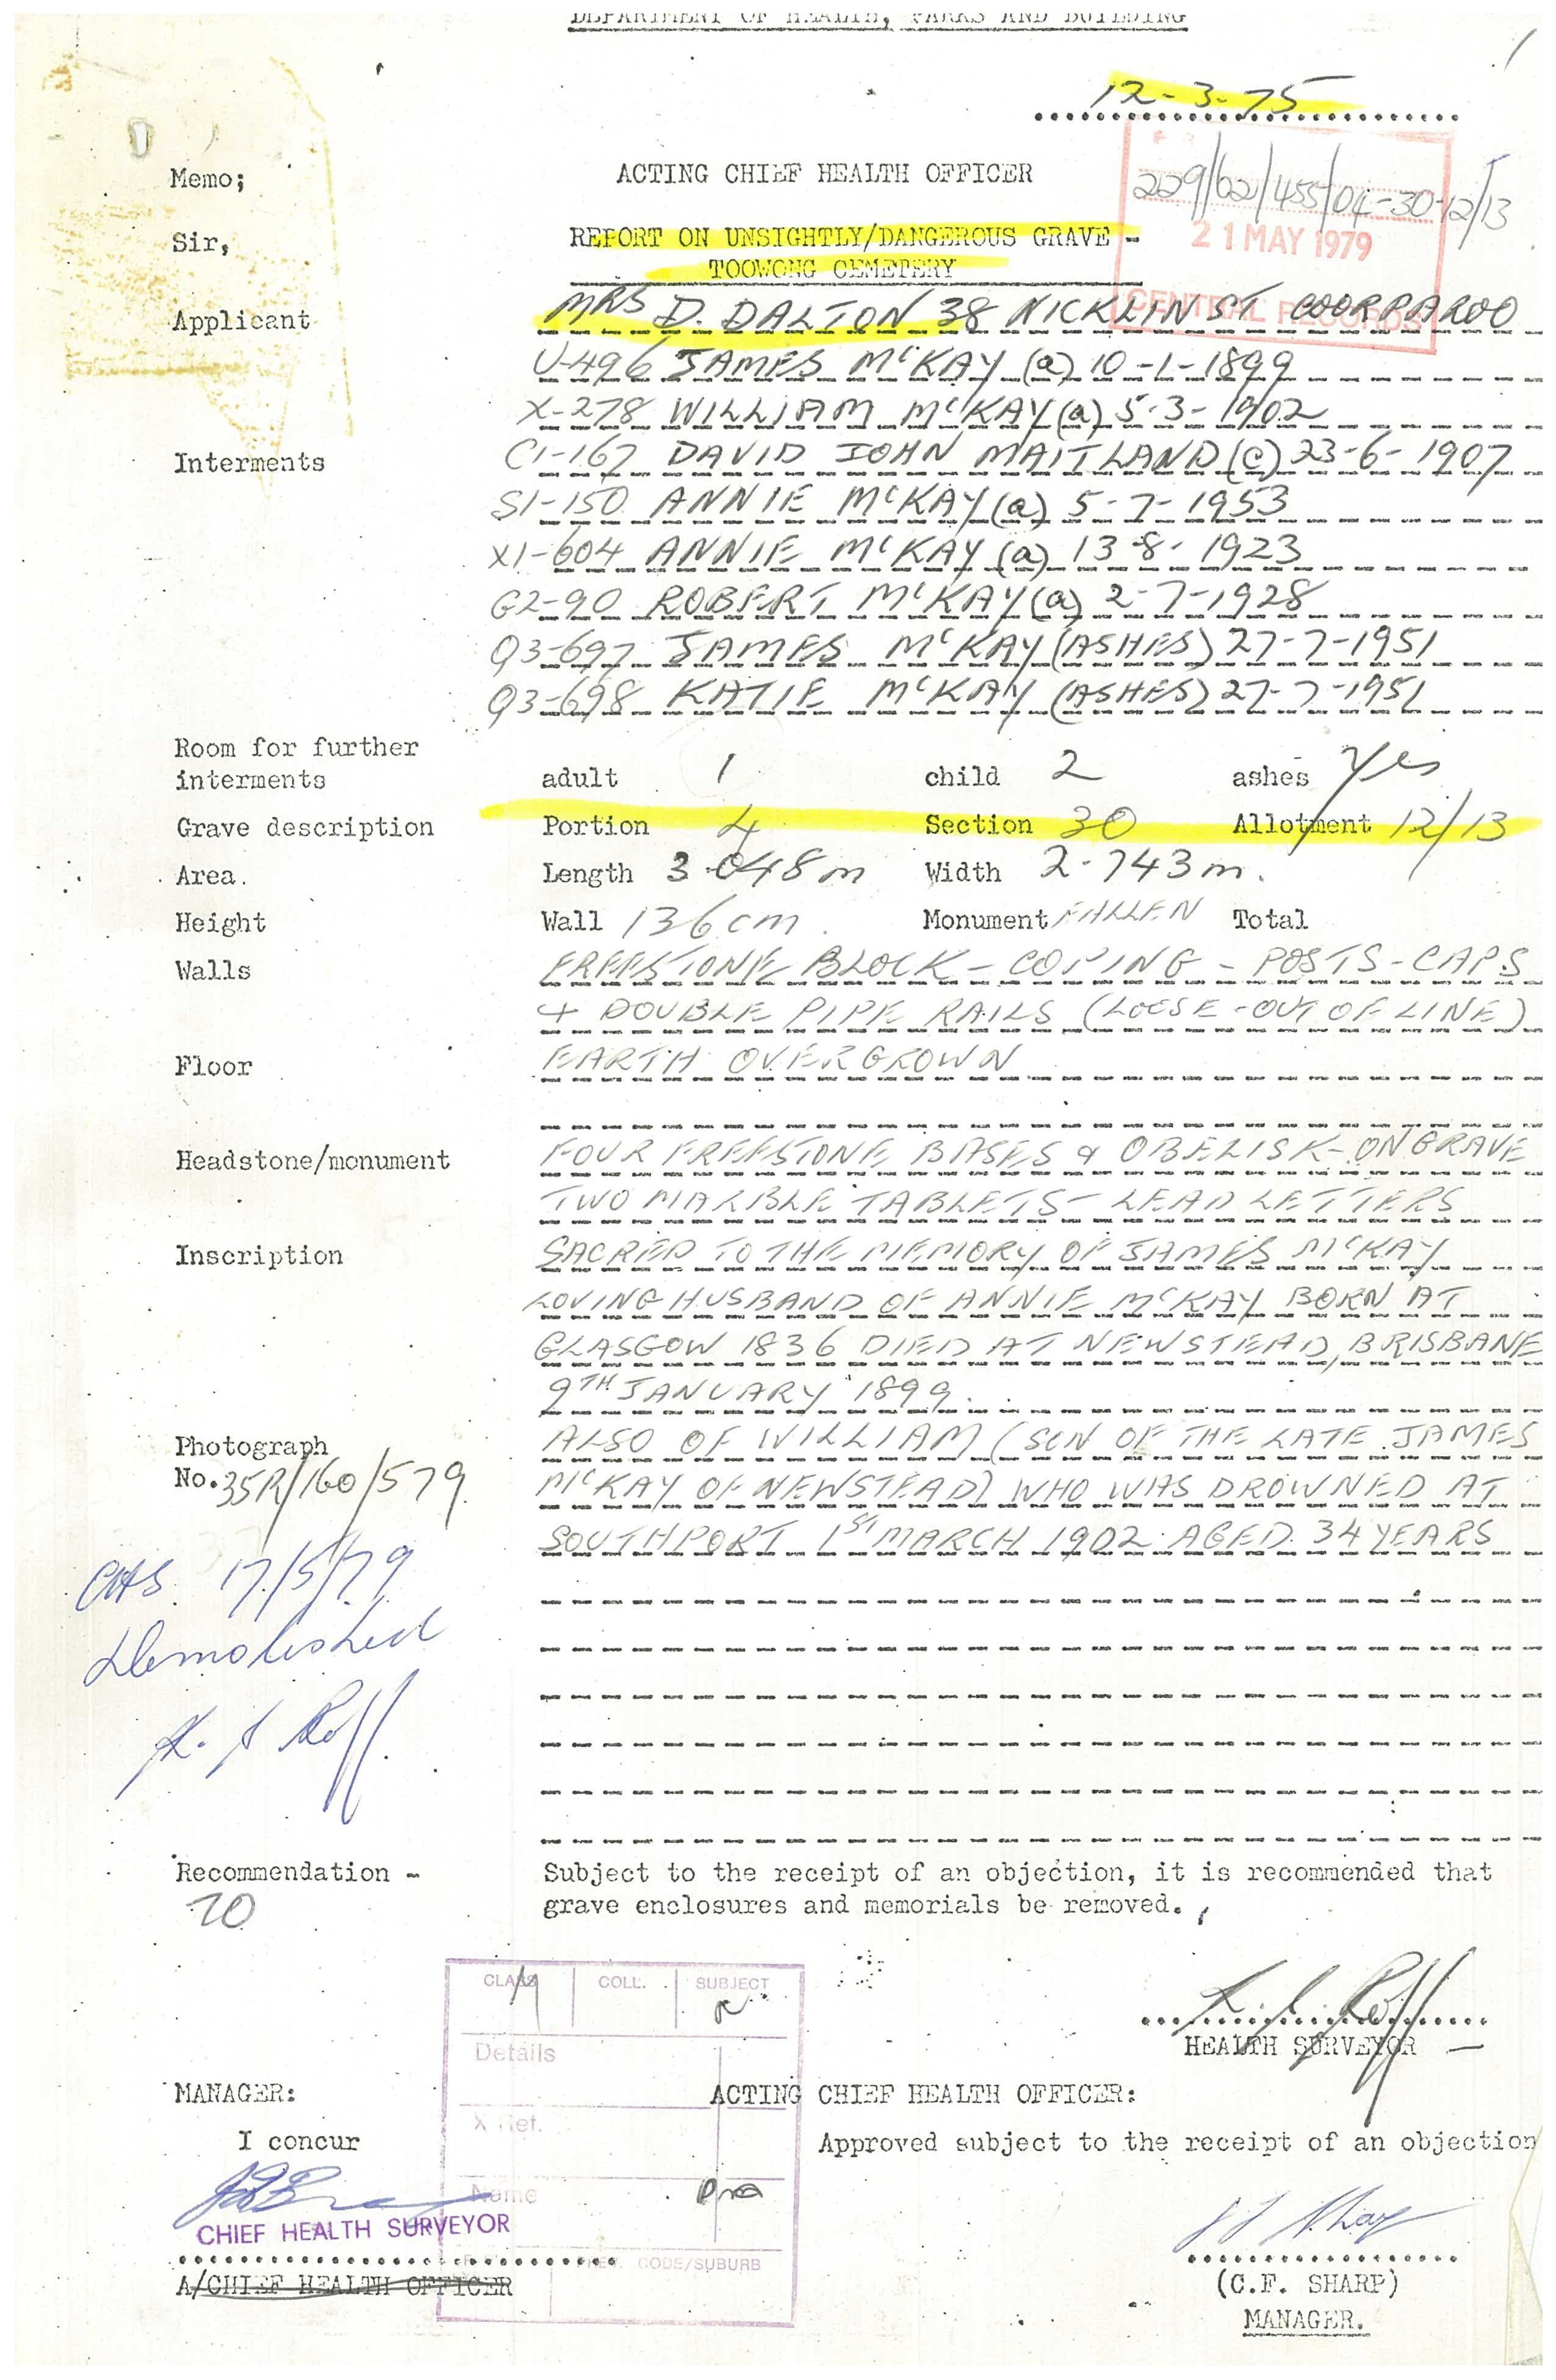 DEPARTMENT OF HEALTH, PARKS AND BUILDING
12-3-75
Memo;
ACTING CHIEF HEALTH OFFICER
229/62/455/04-30-12/13
Sir,
REPORT ON UNSIGHTLY/DANGEROUS GRAVE -
TOOWONG CEMETERY
21 MAY 1979
CENTRAL RECORDS
Applicant MRS D. DALTON 38 NICKLIN ST COORPAROO
U-496 JAMES McKAY (a) 10-1-1899
X-278 WILLIAM McKAY (a) 5-3-1902
Interments C1-167 DAVID JOHN MAITLAND (c) 23-6-1907
S1-150 ANNIE McKAY (a) 5-7-1953
X1-604 ANNIE McKAY (a) 13-8-1923
G2-90 ROBERT McKAY (a) 2-7-1928
Q3-697 JAMES McKAY (ASHES) 27-7-1951
Q3-698 KATIE McKAY (ASHES) 27-7-1951
Room for further
interments adult 1 child 2 ashes Yes
Grave description Portion 4 Section 30 Allotment 12/13
Area. Length 3.048m Width 2.743m.
Height Wall 136cm. Monument FALLEN Total
Walls FREESTONE BLOCK - COPING - POSTS - CAPS
+ DOUBLE PIPE RAILS (LOOSE - OUT OF LINE)
Floor EARTH OVERGROWN
Headstone/monument FOUR FREESTONE BASES & OBELISK - ON GRAVE
TWO MARBLE TABLETS - LEAD LETTERS
Inscription SACRED TO THE MEMORY OF JAMES McKAY
LOVING HUSBAND OF ANNIE McKAY BORN AT
GLASGOW 1836 DIED AT NEWSTEAD, BRISBANE
9TH JANUARY 1899.
Photograph ALSO OF WILLIAM (SON OF THE LATE JAMES
No. 35R/160/579 McKAY OF NEWSTEAD) WHO WAS DROWNED AT
SOUTHPORT 1ST MARCH 1902 AGED 34 YEARS
17/5/79
Demolished
Recommendation - Subject to the receipt of an objection, it is recommended that
70 grave enclosures and memorials be removed.
CLASS COLL. SUBJECT
Details
HEALTH SURVEYOR
MANAGER: ACTING CHIEF HEALTH OFFICER:
X Ref.
I concur Approved subject to the receipt of an objection
Name
CHIEF HEALTH SURVEYOR
CODE/SUBURB
A/CHIEF HEALTH OFFICER
(C.F. SHARP)
MANAGER.